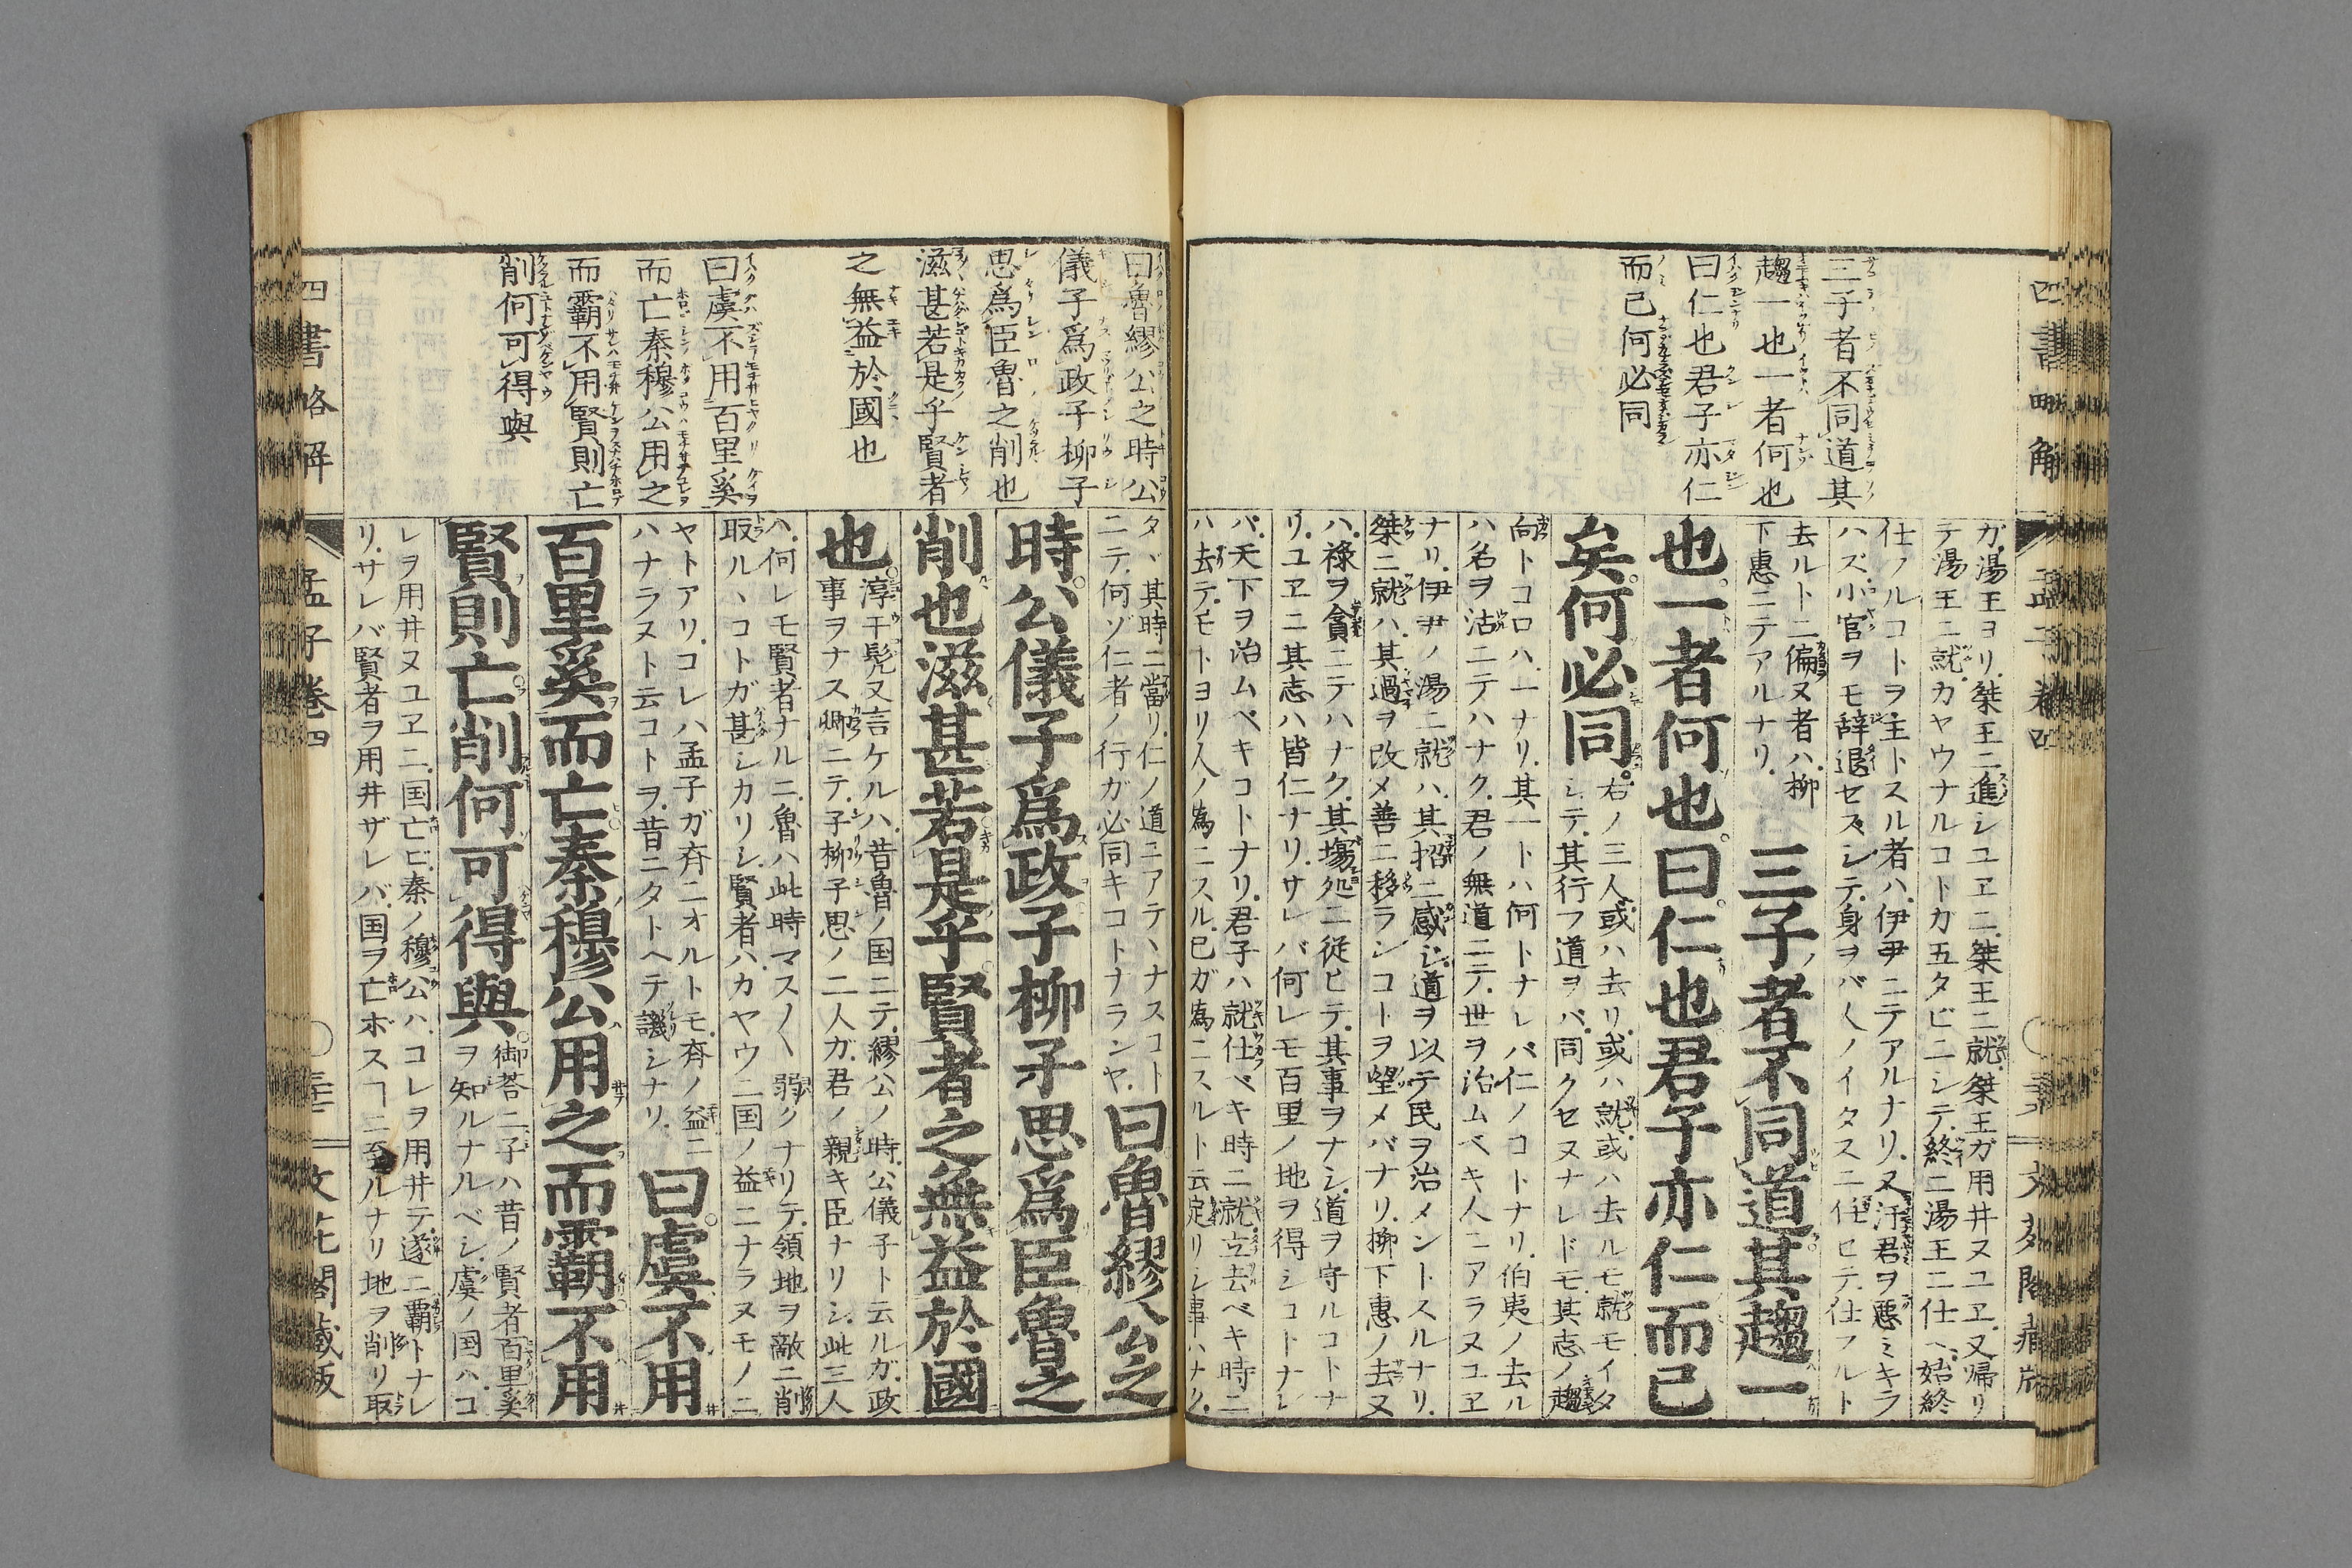 四書略解
孟子巻四
三子者不同道其
趨一也一者何也
曰仁也君子亦仁
而已何必同
ガ湯王ヨリ桀王ニ進シユヱニ桀王ニ就桀王ガ用井ヌユヱ又帰リ
テ湯王ニ就カヤウナルコトカ五タビニシテ終ニ湯王ニ仕ヘ始終
仕ノルコトヲ主トスル者ハ伊尹ニテアルナリ又汙君ヲ悪ミキラ
ハズ小官ヲモ辞退セズシテ身ヲバ〱ノイタスニ任セテ仕フルト
去ルトニ偏ヌ者ハ柳
下惠ニテアルナリ
三子者不同道其趨一
也一者何也曰仁也君子亦仁而已
矣何必同
右ノ三人或ハ去リ或ハ就或ハ去ルモ就モイタ
シテ其行フ道ヲバ同クセヌナレドモ其志ノ趨
向トコロハ一ナリ其一トハ何トナレバ仁ノコトナリ伯夷ノ去ル
ハ名ヲ沽ニテハナク君ノ無道ニテ世ヲ治ムベキ人ニアラヌユヱ
ナリ伊尹ノ湯ニ就ハ其招ニ感シ道ヲ以テ民ヲ治メントスルナリ
桀ニ就ハ其過ヲ改メ善ニ移ランコトヲ望メバナリ柳下惠ノ去ヌ
ハ禄ヲ貪ニテハナク其塲処ニ従ヒテ其事ヲナシ道ヲ守ルコトナ
リユヱニ其志ハ皆仁ナリサレバ何レモ百里ノ地ヲ得シコトナレ
バ天下ヲ治ムベキコトナリ君子ハ就仕ベキ時ニ就立去ベキ時ニ
ハ去テモトヨリ人ノ為ニスル己ガ為ニスルト云定リシ事ハナク
曰魯繆公之時公
儀子爲政子柳子
思爲臣魯之削也
滋甚若是乎賢者
之無益於國也
曰虞不用百里奚
而亡秦穆公用之
而霸不用賢則亡
削何可得與
タヾ其時ニ當リ仁ノ道ニアテヽナスコト
ニテ何ゾ仁者ノ行ガ必同キコトナランヤ
曰魯繆公之
時公儀子爲政子柳子思爲臣魯之
削也滋甚若是乎賢者之無益於國
也
淳于髡又言ケルハ昔魯ノ国ニテ繆公ノ時公儀子ト云ルガ政
事ヲナス卿ニテ子柳子思ノ二人ガ君ノ親キ臣ナリシ此三人
ハ何レモ賢者ナルニ魯ハ此時マス〱弱クナリテ領地ヲ敵ニ削
取ルヽコトガ甚シカリシ賢者ハカヤウニ国ノ益ニナラヌモノニ
ヤトアリコレハ孟子ガ斉ニオルトモ斉ノ益ニ
ハナラヌト云コトヲ昔ニタトヘテ譏シナリ
曰虞不用
百里奚而亡秦穆公用之而霸不用
賢則亡削何可得與
御荅ニ子ハ昔ノ賢者百里奚
ヲ知ルナルベシ虞ノ国ハコ
レヲ用井ヌユヱニ国亡ビ秦ノ穆公ハコレヲ用井テ遂ニ覇トナレ
リサレバ賢者ヲ用井ザレバ国ヲ亡ボスヿニ至ルナリ地ヲ削リ取
四書略解
孟子巻四
文花閣蔵版